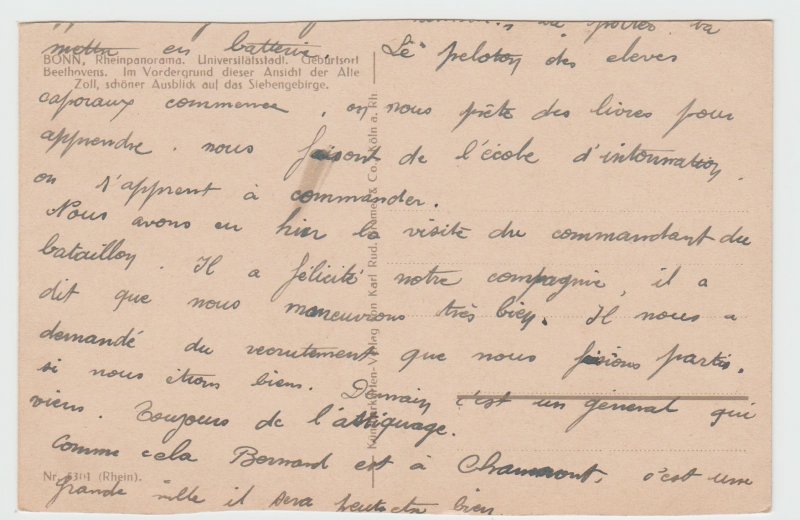 va
en batterie. Le peloton des eleves
BONN, Rheinpanorama. Universitätsstadt. Geburtsort
Beethovens. Im Vordergrund dieser Ansicht der Alte
Zoll, schöner Ausblick auf das Siebengebirge.
caporaux commence, on nous prête des livres pour
apprendre. nous faisont de l'école d'intonnation,
on s'apprent à commander.
Nous avons eu hier la visite du commandant du
bataillon. Il a félicité notre compagnie, il a
dit que nous manœuvrons très bien. Il nous a
demandé du recrutement que nous fesions partis.
si nous étions biens. Demain c'est un général qui
viens. Toujours de l'astiquage.
Comme cela Bernard est à Chaumont, c'est une
grande ville il sera bien
Kunstkarten-Verlag von Karl Rud. Bremer & Co. Köln a. Rh
Nr. 5301 (Rhein).